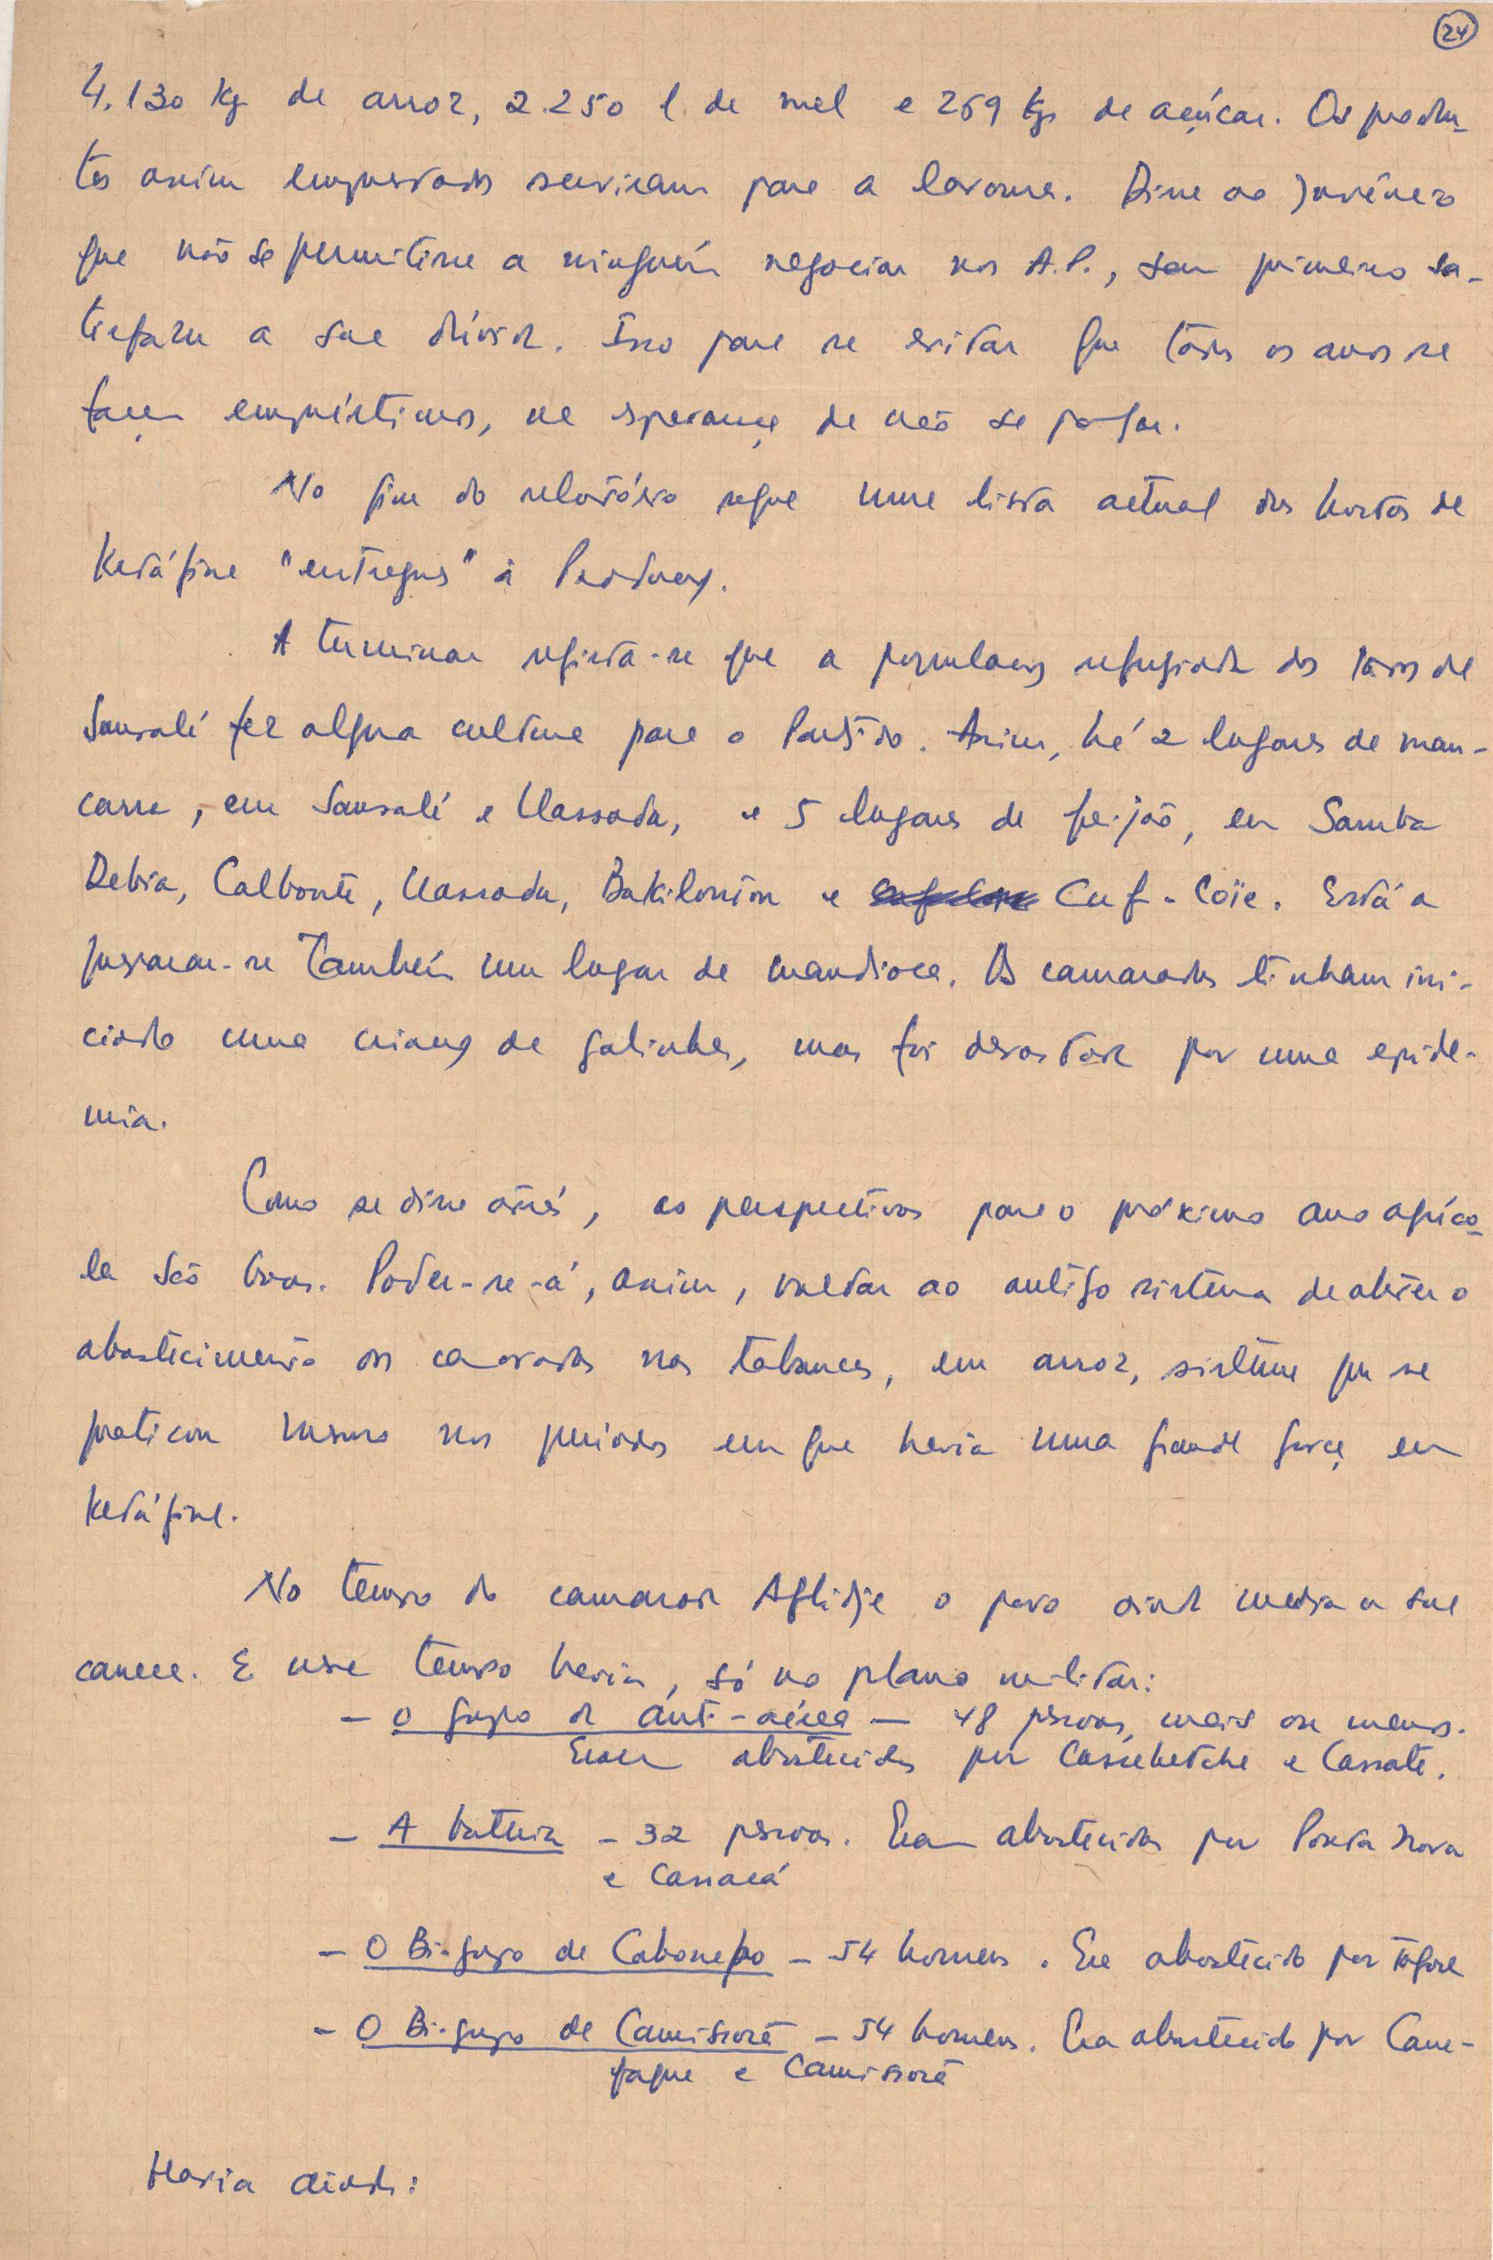 24
4.130 kg de arroz, 2.250 l. de mel e 269 kgs de açúcar. Os produ-
tos assim emprestados serviram para a lavoura. Disse ao Juvêncio
que não se permitisse a ninguém negociar nos A.P., sem primeiro sa-
tisfazer a sua dívida. Isso para se evitar que todos os anos se
façam empréstimos, na esperança de não se pagar.
No fim do relatório segue uma lista actual das hortas de
Ketáfine "entregues" à Produção.
A terminar regista-se que a população refugiada dos lados de
Sansalé fez alguma cultura para o Partido. Assim, há 2 lugares de man-
carra, em Sansalé e Uassada, e 5 lugares de feijão, em Samba
Debia, Calbonte, Uassada, e Cuf-Coïe. Está a
preparar-se também um lugar de mandioca. Os camaradas tinham ini-
ciado uma criação de galinhas, mas foi devastada por uma epide-
mia.
Como se disse atrás, as perspectivas para o próximo ano agríco-
la são boas. Poder-se-á, assim, voltar ao antigo sistema de abter o
abastecimento dos camaradas nas tabancas, em arroz, sistema que se
praticou mesmo nos períodos em que havia uma grande força em
Ketáfine.
No tempo do camarada Aglidje o povo ainda media a sua
caneca. E nesse tempo havia, só no plano militar:
- O grupo da anti-aérea - 48 pessoas, mais ou menos.
Eram abastecidos por Cassebetche e Cassate.
- A bateria - 32 pessoas. Eram abastecidos por Ponta Nova
e Cassacá
- O Bi-grupo de Cabonepo - 54 homens. Era abastecido por
- O Bi-grupo de Camissorã - 54 homens. Era abastecido por Cane-
faque e Camissorã
Havia ainda: